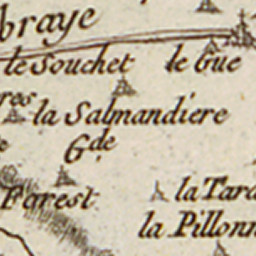 braye
le Souchet le Gué
res la Salmandiere
e Gde
Forest la Tard
la Pillonn